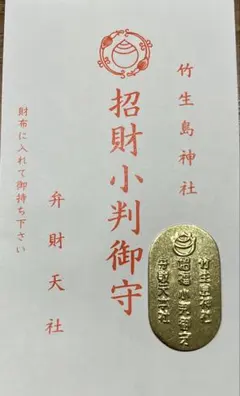 竹生島神社
招財小判御守
弁財天社
財布に入れて御持ち下さい
竹生島神社
招福小判御守
弁財天社